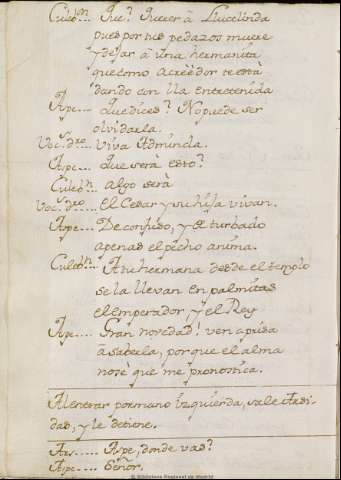 Culeb.ⁿ Que? Querer à Lucelinda
pues por tus pedazos muere
y dejar à una hermanita
que como acreèdor te està
dando con lla entretenida
Aspe.... que dices? No puede ser
olvidarla.
Voc.ˢ dro. viva Adminda.
Aspe.... que serà esto?
Culeb.ⁿ algo serà
Voc.ˢ dro..... El Cesar y su hija vivan.
Aspe.... De confuso, y turbado
apenas el pecho anima.
Culeb.ⁿ A tu hermana desde el templo
se la llevan en palmitas
el emperador, y el Rey
Aspe.... Gran novedad! ven aprisa
à saberla, porque el alma
no sè què me pronostica.
Al entrar por mano izquierda, sale Arsi-
das, y le detiene.
Ars..... Aspe, donde vas?
Aspe.... Señor.
Biblioteca Regional de Madrid